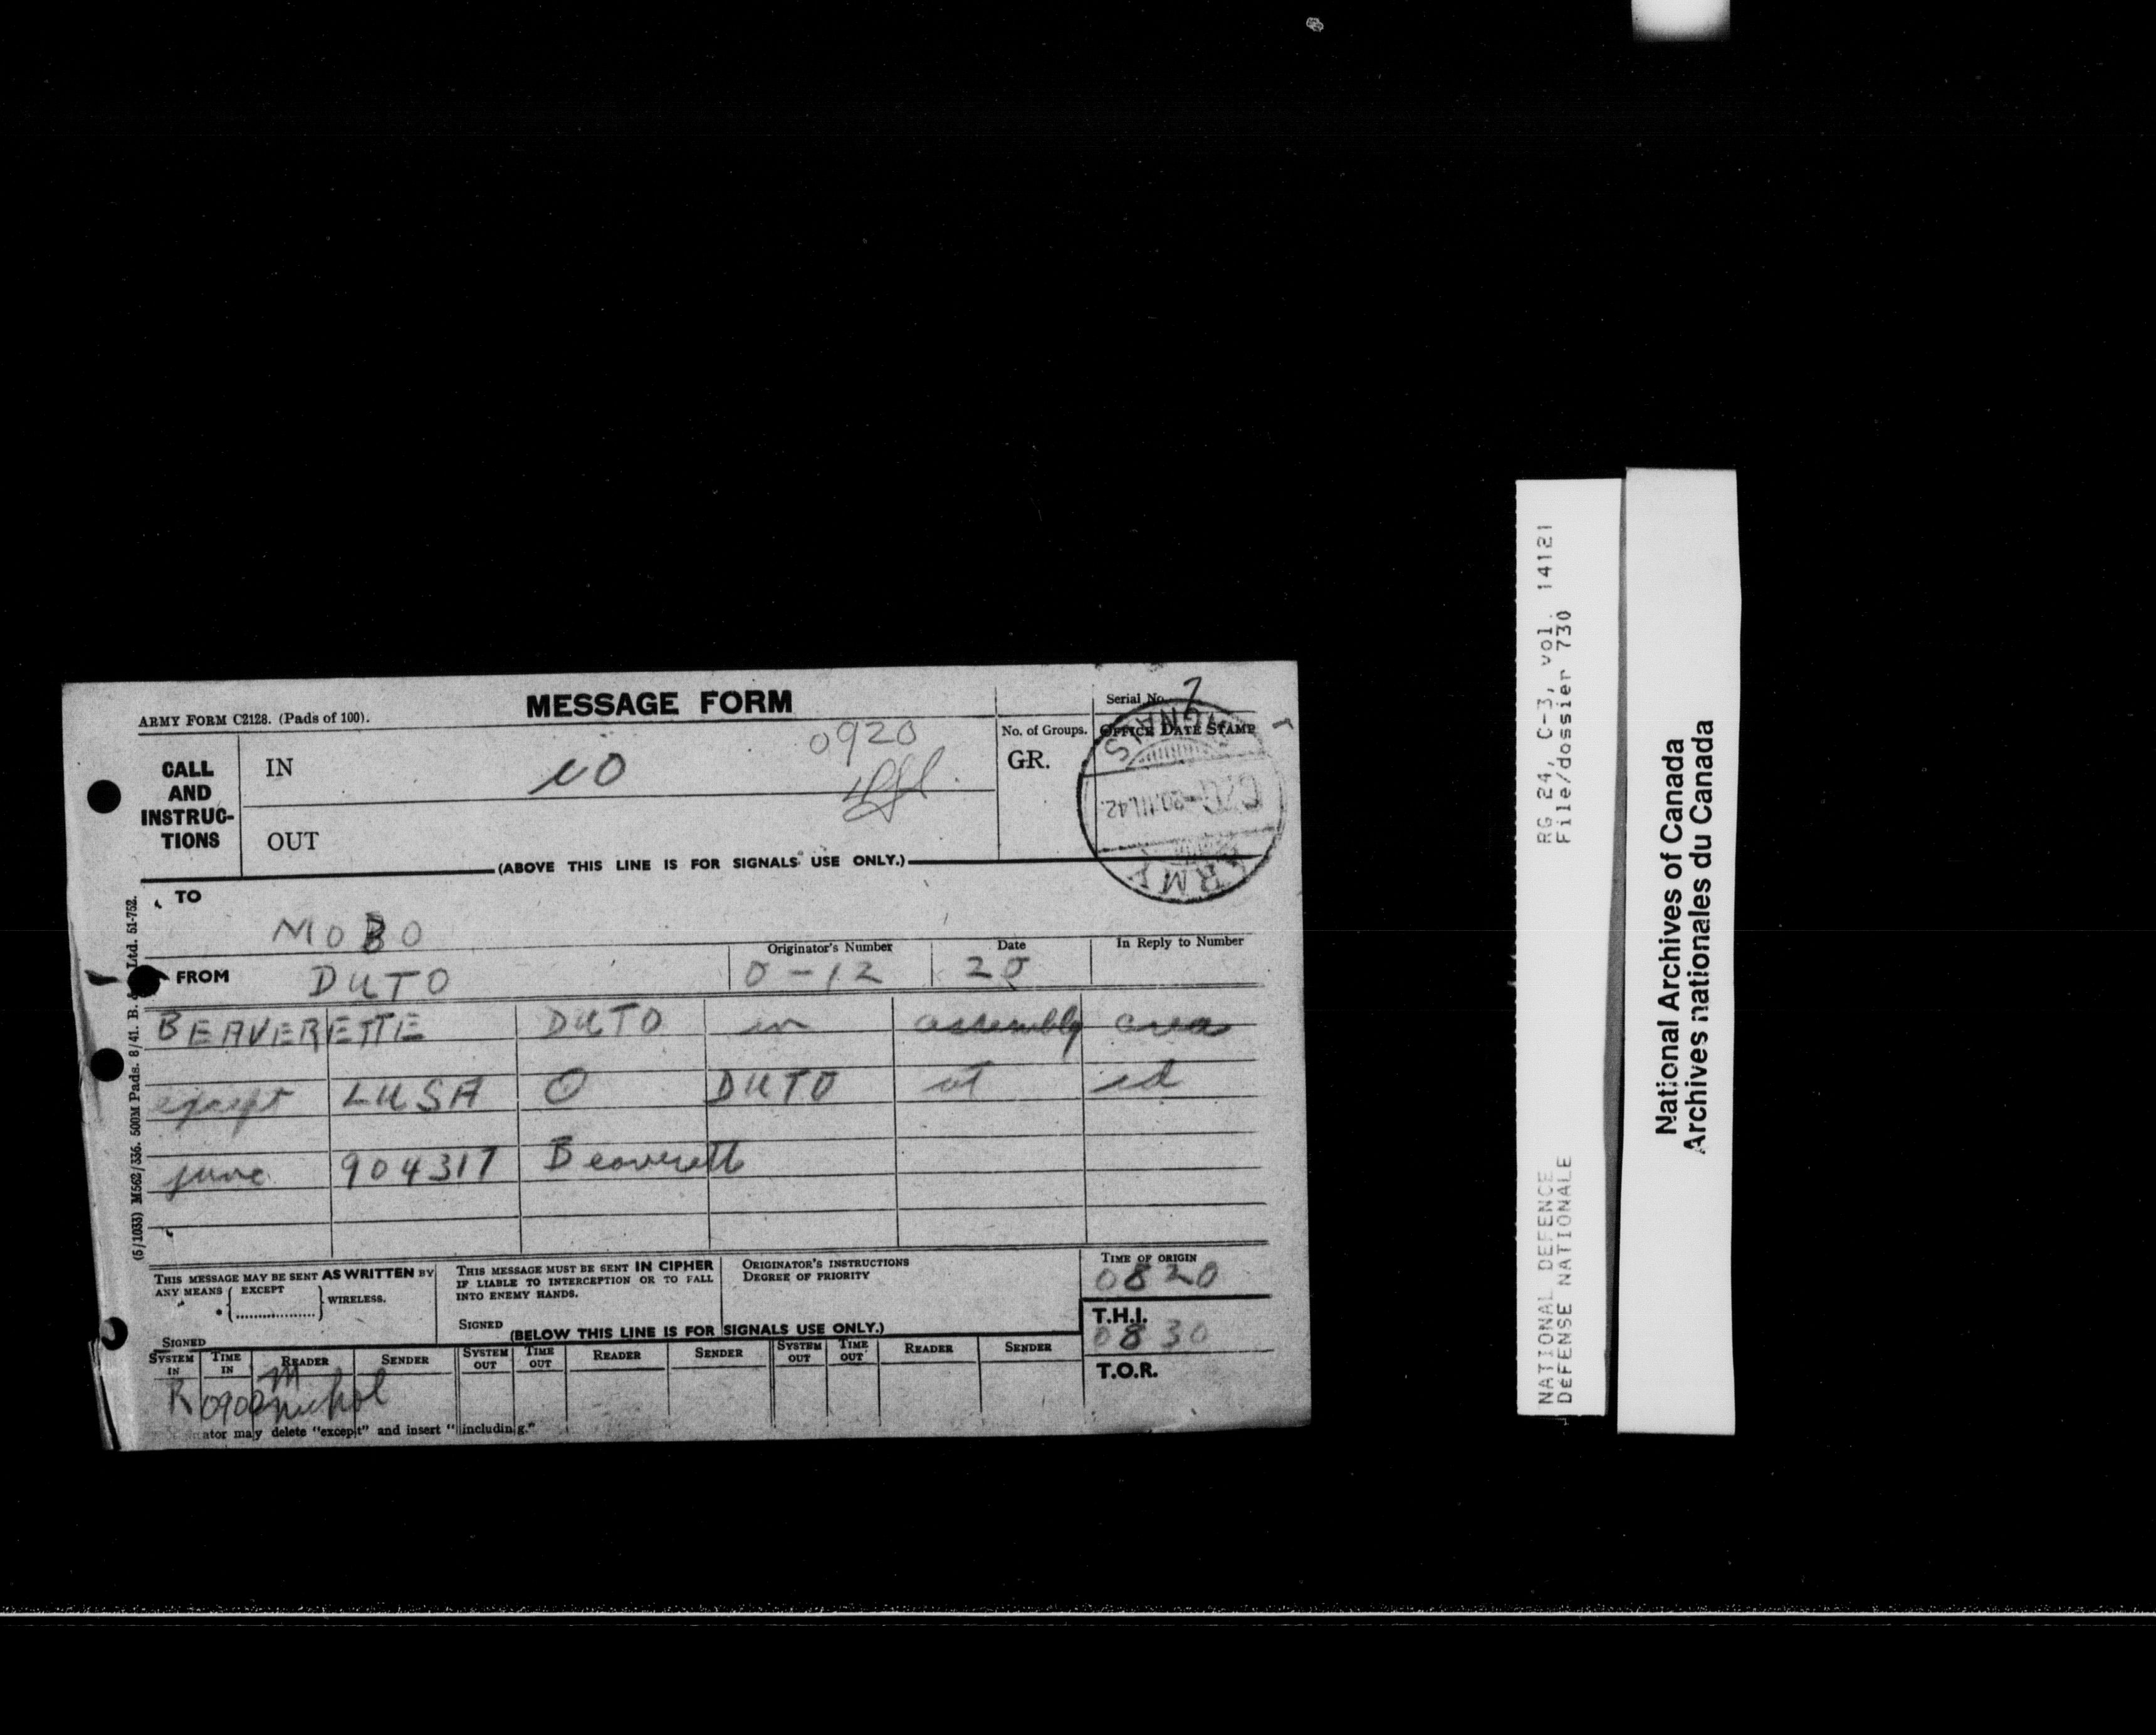 ARMY FORM C2128. (Pads of 100).
MESSAGE FORM
Serial No. 7
CALL AND INSTRUC-TIONS
IN
0920
OUT
No. of Groups.
GR.
OFFICE DATE STAMP
ARMY SIGNALS
20.III.42.
(ABOVE THIS LINE IS FOR SIGNALS USE ONLY.)
TO
MOBO
FROM DUTO
Originator's Number
0-12
Date
20
In Reply to Number
BEAVERETTE DUTO in assembly area
except LUSA O DUTO at rd
junc 904317 Beaverette
THIS MESSAGE MAY BE SENT AS WRITTEN BY
ANY MEANS { EXCEPT
* { .................... } WIRELESS.
SIGNED
THIS MESSAGE MUST BE SENT IN CIPHER
IF LIABLE TO INTERCEPTION OR TO FALL
INTO ENEMY HANDS.
SIGNED
ORIGINATOR'S INSTRUCTIONS
DEGREE OF PRIORITY
TIME OF ORIGIN
0820
T.H.I.
0830
T.O.R.
(BELOW THIS LINE IS FOR SIGNALS USE ONLY.)
SYSTEM IN TIME IN READER SENDER SYSTEM OUT TIME OUT READER SENDER SYSTEM OUT TIME OUT READER SENDER
R 0900
ator may delete "except" and insert "including."
(5/1033) M562/336. 500M Pads. 8/41. B. Ltd. 51-752.
RG 24, C-3, vol. 14121
File/dossier 730
NATIONAL DEFENCE
DEFENSE NATIONALE
National Archives of Canada
Archives nationales du Canada